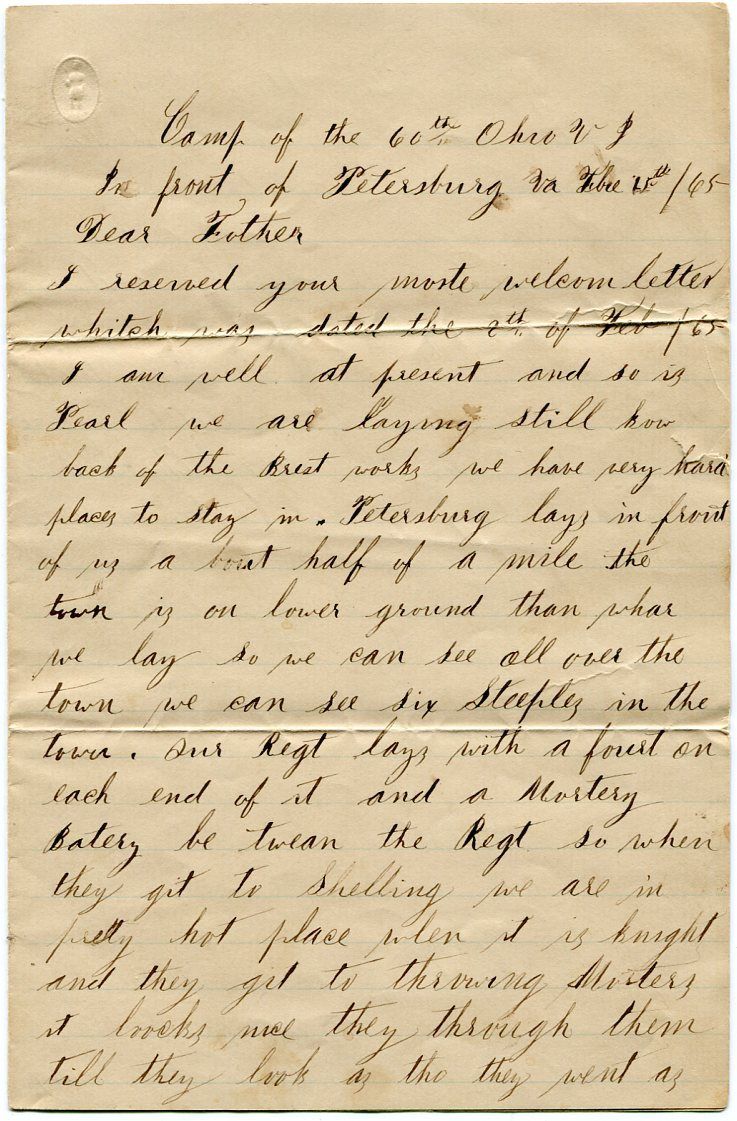 Camp of the 60th Ohio V I
In front of Petersburg Va Fbe 15th /65
Dear Father
I reserved your moste welcom letter
whitch was dated the 8th of Feb /65
I am well at present and so is
Pearl we are laying still know
back of the Brest works we have very hard
places to stay in. Petersburg lays in front
of us a bout half of a mile the
town is on lower ground than whar
we lay so we can see all over the
town we can see six Steeples in the
town. our Regt lays with a fourt on
each end of it and a Mortery
Batery be twean the Regt so when
they git to Shelling we are in
pretty hot place when it is knight
and they git to throwing Morters
it loocks nice they through them
till they look as tho they went as